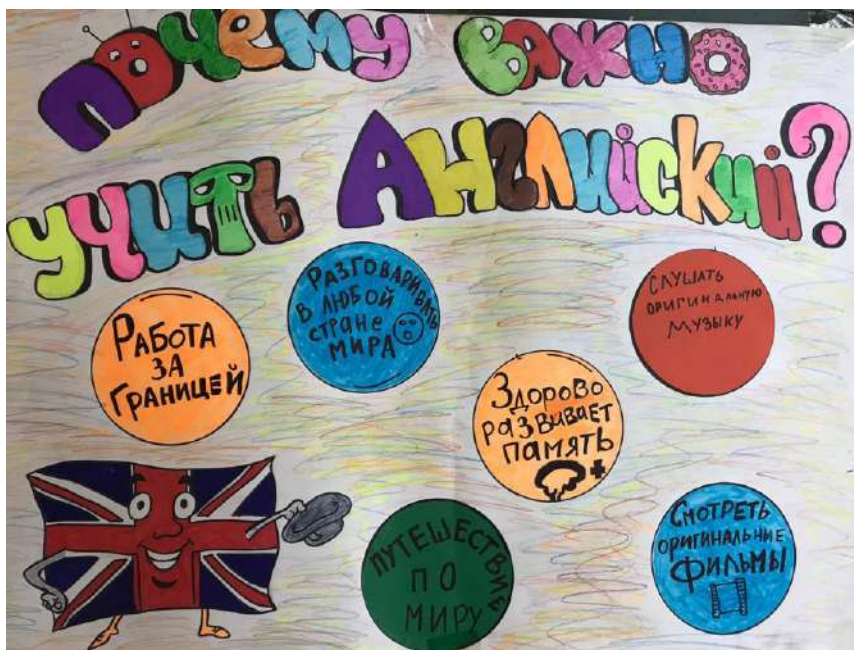 Почему важно
учить Английский?
РАЗГОВАРИВАТЬ
В ЛЮБОЙ
стране
МИРА
СЛУШАТЬ
ОРИГИНАЛЬНУЮ
МУЗЫКУ
РАБОТА
ЗА
ГРАНИЦЕЙ
ЗДОРОВО
РАЗВИВАЕТ
ПАМЯТЬ
ПУТЕШЕСТВИЕ
ПО
МИРУ
СМОТРЕТЬ
ОРИГИНАЛЬНЫЕ
ФИЛЬМЫ